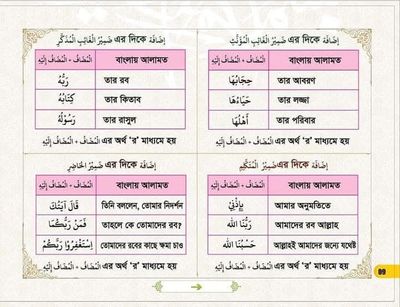 اِضَافَة এর দিকে ضَمِيْرُ الْغَائِبِ الْمُذَكَّرِ
اَلْمُضَافُ + اَلْمُضَافُ اِلَيْهِ বাংলায় আলামত
رَبُّهُ তার রব
كِتَابُهُ তার কিতাব
رَسُوْلُهُ তার রাসুল
اَلْمُضَافُ + اَلْمُضَافُ اِلَيْهِ এর অর্থ ‘র’ মাধ্যমে হয়
اِضَافَة এর দিকে ضَمِيْرُ الْغَائِبِ الْمُؤَنَّثِ
اَلْمُضَافُ + اَلْمُضَافُ اِلَيْهِ বাংলায় আলামত
حِجَابُهَا তার আবরণ
حَيَاءُهَا তার লজ্জা
أَهْلُهَا তার পরিবার
اَلْمُضَافُ + اَلْمُضَافُ اِلَيْهِ এর অর্থ ‘র’ মাধ্যমে হয়
اِضَافَة এর দিকে ضَمِيْرُ الْحَاضِرِ
اَلْمُضَافُ + اَلْمُضَافُ اِلَيْهِ বাংলায় আলামত
قَالَ اٰيَتُكَ তিনি বললেন, তোমার নিদর্শন
فَمَنْ رَبُّكُمَا তাহলে কে তোমাদের রব?
اِسْتَغْفِرُوْا رَبَّكُمْ তোমাদের রবের কাছে ক্ষমা চাও
اَلْمُضَافُ + اَلْمُضَافُ اِلَيْهِ এর অর্থ ‘র’ মাধ্যমে হয়
اِضَافَة এর দিকে ضَمِيْرُ الْمُتَكَلِّمِ
اَلْمُضَافُ + اَلْمُضَافُ اِلَيْهِ বাংলায় আলামত
بِإِذْنِيْ আমার অনুমতিতে
رَبُّنَا اللّٰه আমাদের রব আল্লাহ
حَسْبُنَا اللّٰه আল্লাহই আমাদের জন্যে যথেষ্ট
اَلْمُضَافُ + اَلْمُضَافُ اِلَيْهِ এর অর্থ ‘র’ মাধ্যমে হয়